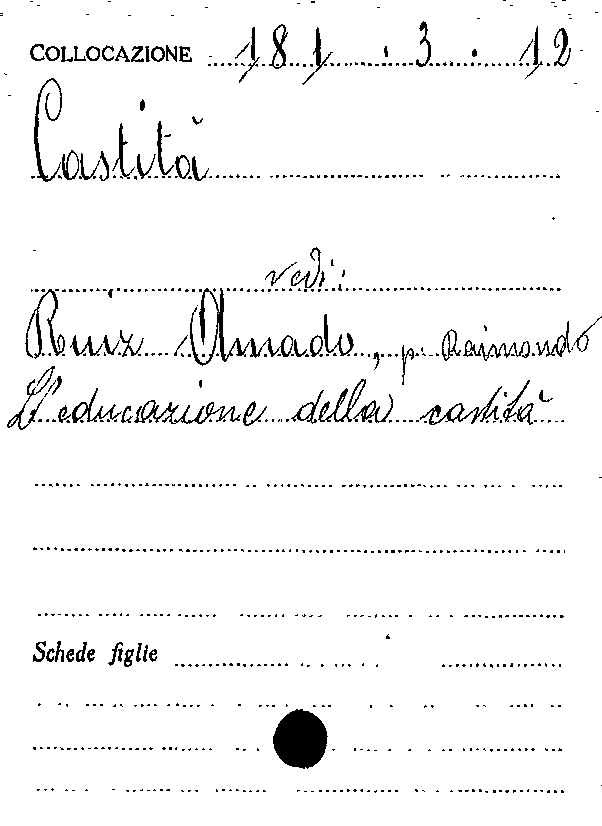 COLLOCAZIONE 181 . 3 . 12
Castità
vedi:
Ruiz Amado, p. Raimondo
L'educazione della castità
Schede figlie